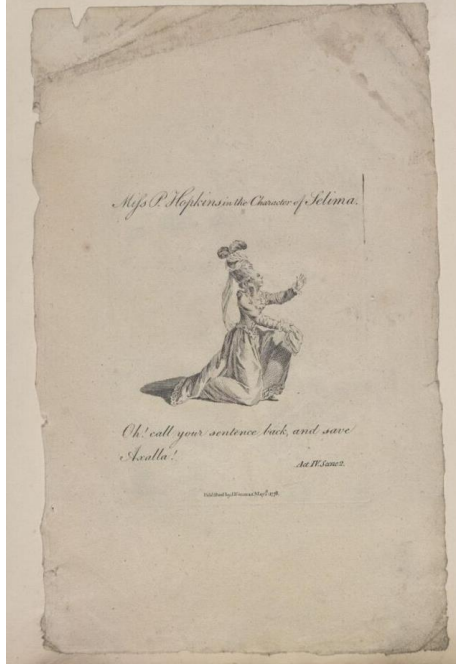 Miss P. Hopkins in the Character of Selima.
Oh! call your sentence back, and save
Axalla!
Act IV. Scene 2.
Published by May 1778.